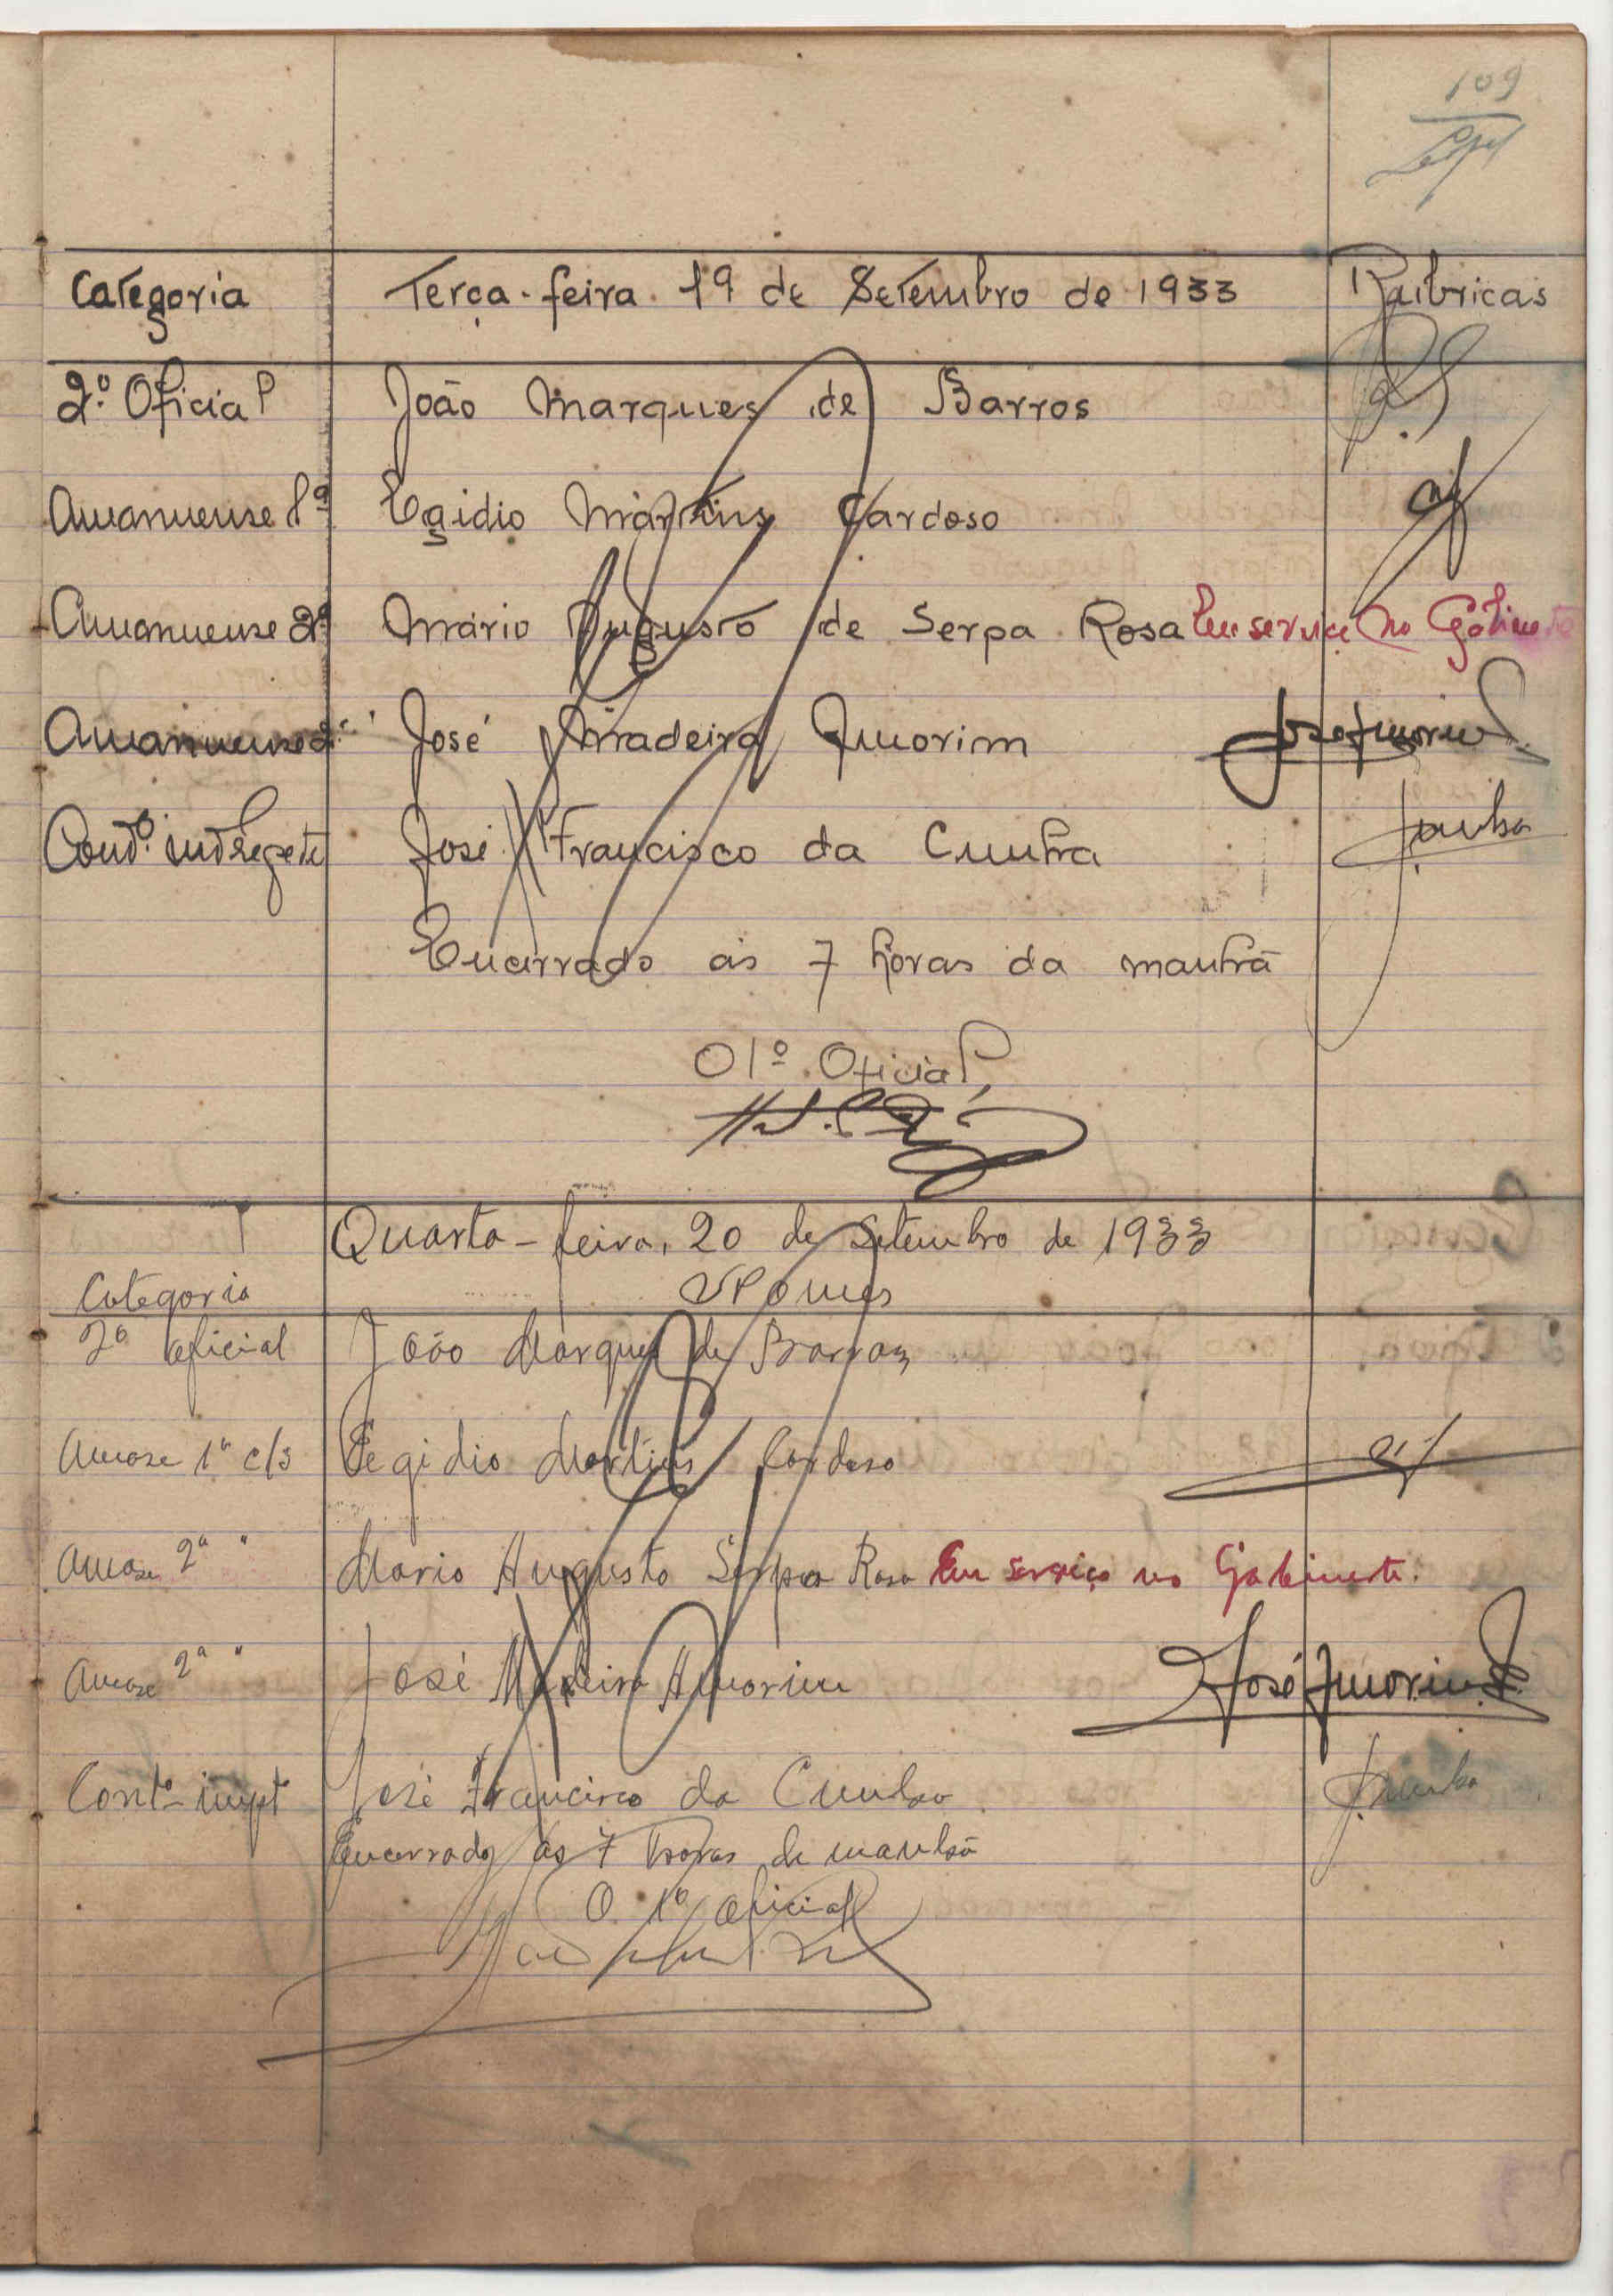 109
Categoria Terça-feira 19 de Setembro de 1933 Rubricas
2.º Oficial João Marques de Barros
Amanuense 1ª Egidio Martins Cardoso
Amanuense 2ª Mário Augusto de Serpa Rosa Em serviço no Gabinete
Amanuense 2ª José Madeira Amorim José Amorim
José Francisco da Cunha JCunha
Encerrado ás 7 horas da manhã
O 1º Oficial,
Quarta-feira, 20 de Setembro de 1933
Categoria Nomes
2º oficial João Marques de Barros
Amase 1ª c/s Egidio Martins Cardoso
Amase 2ª " Mario Augusto Serpa Rosa Em serviço no Gabinete.
Amase 2ª " José Madeira Amorim José Amorim
Contº impt José Francisco da Cunha JCunha
Encerrado ás 7 horas da manhã
O 1º oficial